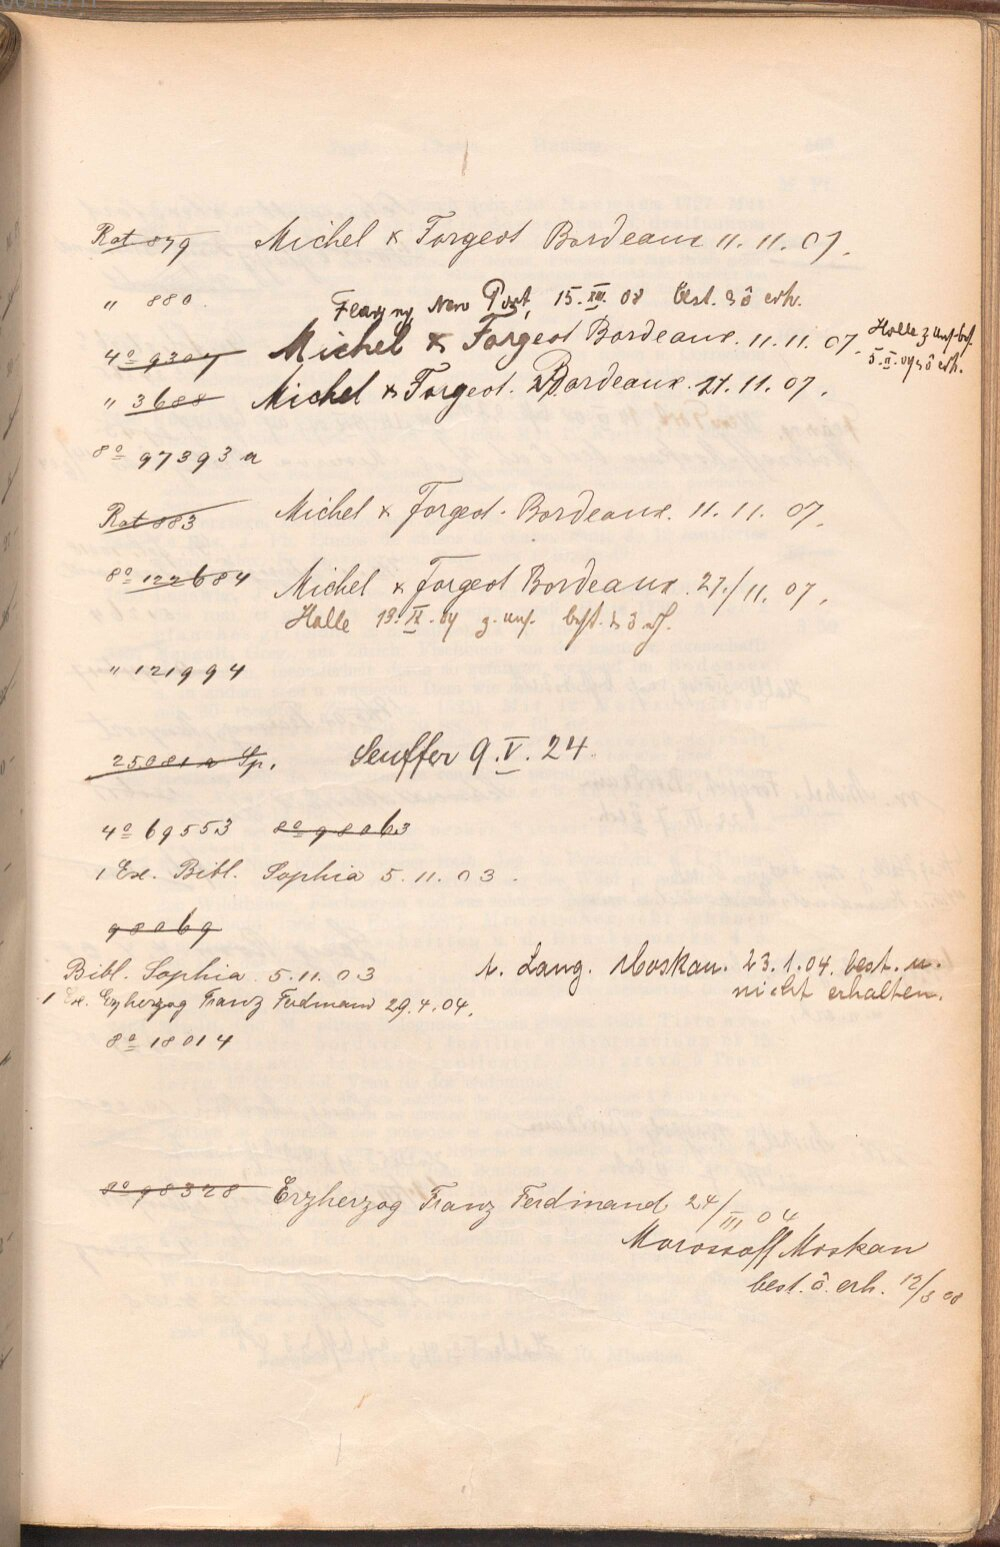 Rat 879 Michel & Forgeot Bordeaux 11. 11. 07.
" 880. New Port, 15. XII. 08 best. ô erh.
4º 9304 Michel & Forgeot Bordeaux. 11. 11. 07. Halle z.
5. II. 09 ô erh.
" 3688 Michel & Forgeot. Bordeaux. 11. 11. 07.
8º 97393 a
Rat 883 Michel & Forgeot. Bordeaux. 11. 11. 07.
8º 122684 Michel & Forgeot Bordeaux. 27./11. 07.
Halle 19. II. 09 z.
" 121994
25081 a Sp. Seuffer 9. V. 24.
4º 69553 8º 98063
1 Ex. Bibl. Sophia 5. 11. 03.
98069
Bibl. Sophia. 5. 11. 03 t. Lang. Moskau. 23. 1. 04. best. u.
nicht erhalten.
1 Ex. Erzherzog Franz Ferdinand 29. 4. 04.
8º 18014
8º 98328 Erzherzog Franz Ferdinand 24/III 04
Morossoff Moskau
best. ô. erh. 12/3 08